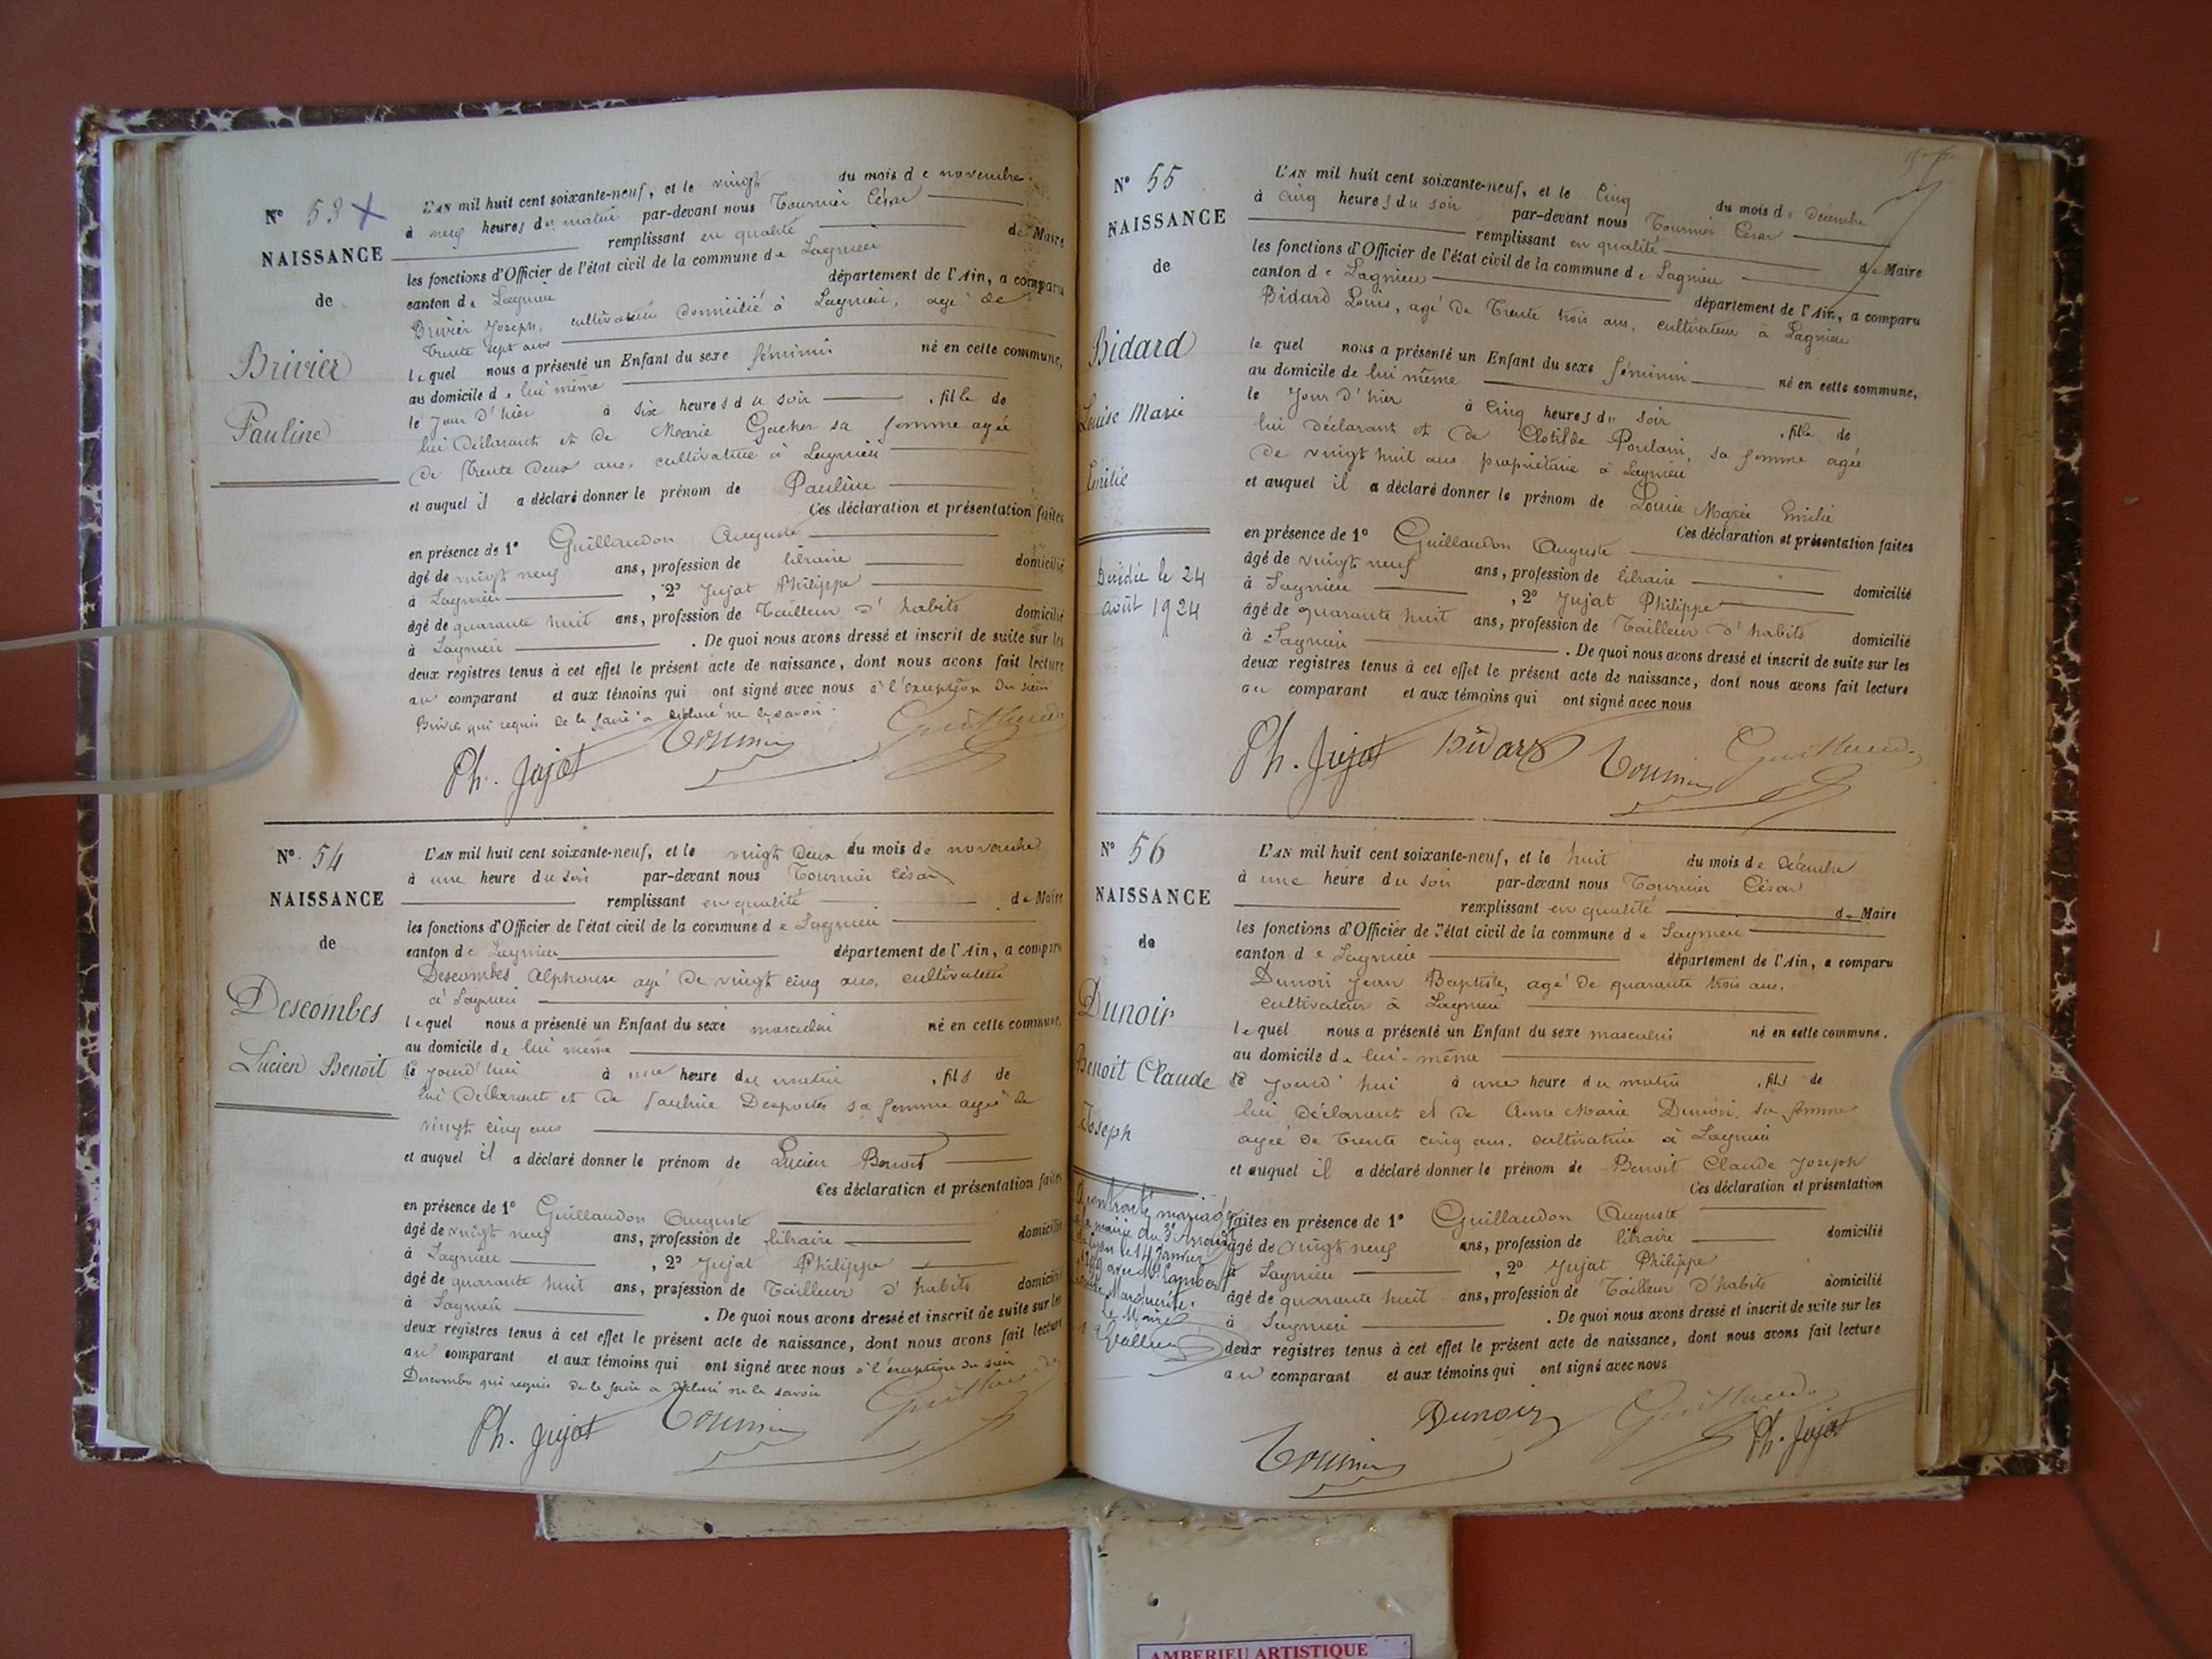 N° 53 X
NAISSANCE
de
Brivier
Pauline
L'AN mil huit cent soixante-neuf, et le vingt du mois de novembre
à neuf heures du matin par-devant nous Tournier César
remplissant en qualité de Maire
les fonctions d'Officier de l'état civil de la commune de Lagnieu
canton de Lagnieu département de l'Ain, a comparu
Brivier Joseph, cultivateur domicilié à Lagnieu, agé de
trente sept ans
lequel nous a présenté un Enfant du sexe féminin né en cette commune,
au domicile de lui même
le jour d'hier à six heures du soir, fille de
lui déclarant et de Marie Gacher sa femme agée
de trente deux ans, cultivatrice à Lagnieu
et auquel il a déclaré donner le prénom de Pauline
Ces déclaration et présentation faites
en présence de 1° Guillaudon Auguste
âgé de vingt neuf ans, profession de libraire domicilié
à Lagnieu, 2° Jujat Philippe
âgé de quarante huit ans, profession de Tailleur d'habits domicilié
à Lagnieu. De quoi nous avons dressé et inscrit de suite sur les
deux registres tenus à cet effet le présent acte de naissance, dont nous avons fait lecture
au comparant et aux témoins qui ont signé avec nous à l'exception du sieur
Brivier qui requis de le faire a déclaré ne le savoir.
Ph. Jujat Tournier Guillaudon
N° 54
NAISSANCE
de
Descombes
Lucien Benoît
L'AN mil huit cent soixante-neuf, et le vingt deux du mois de novembre
à une heure du soir par-devant nous Tournier César
remplissant en qualité de Maire
les fonctions d'Officier de l'état civil de la commune de Lagnieu
canton de Lagnieu département de l'Ain, a comparu
Descombes Alphonse agé de vingt cinq ans, cultivateur
à Lagnieu
lequel nous a présenté un Enfant du sexe masculin né en cette commune,
au domicile de lui même
le jourd'hui à une heure du matin, fils de
lui déclarant et de Pauline Desportes sa femme agée de
vingt cinq ans
et auquel il a déclaré donner le prénom de Lucien Benoit
Ces déclaration et présentation faites
en présence de 1° Guillaudon Auguste
âgé de vingt neuf ans, profession de libraire domicilié
à Lagnieu, 2° Jujat Philippe
âgé de quarante huit ans, profession de Tailleur d'habits domicilié
à Lagnieu. De quoi nous avons dressé et inscrit de suite sur les
deux registres tenus à cet effet le présent acte de naissance, dont nous avons fait lecture
au comparant et aux témoins qui ont signé avec nous à l'exception du sieur
Descombes qui requis de le faire a déclaré ne le savoir
Ph. Jujat Tournier Guillaudon
N° 55
NAISSANCE
de
Bidard
Louise Marie
Emilie
Décédée le 24
août 1924
L'AN mil huit cent soixante-neuf, et le cinq du mois de décembre
à cinq heures du soir par-devant nous Tournier César
remplissant en qualité de Maire
les fonctions d'Officier de l'état civil de la commune de Lagnieu
canton de Lagnieu département de l'Ain, a comparu
Bidard Louis, agé de trente trois ans, cultivateur à Lagnieu
lequel nous a présenté un Enfant du sexe féminin né en cette commune,
au domicile de lui même
le jour d'hier à cinq heures du soir, fille de
lui déclarant et de Clotilde Poulain, sa femme agée
de vingt huit ans propriétaire à Lagnieu
et auquel il a déclaré donner le prénom de Louise Marie Emilie
Ces déclaration et présentation faites
en présence de 1° Guillaudon Auguste
âgé de vingt neuf ans, profession de libraire domicilié
à Lagnieu, 2° Jujat Philippe
âgé de quarante huit ans, profession de Tailleur d'habits domicilié
à Lagnieu. De quoi nous avons dressé et inscrit de suite sur les
deux registres tenus à cet effet le présent acte de naissance, dont nous avons fait lecture
au comparant et aux témoins qui ont signé avec nous
Ph. Jujat Bidard Tournier Guillaudon
N° 56
NAISSANCE
de
Dunoir
Benoit Claude
Joseph
mariage
mairie du 3e Arrond
Lyon le 14 Janvier
avec Mlle Lambert
Marguerite.
Le Maire
L'AN mil huit cent soixante-neuf, et le huit du mois de décembre
à une heure du soir par-devant nous Tournier César
remplissant en qualité de Maire
les fonctions d'Officier de l'état civil de la commune de Lagnieu
canton de Lagnieu département de l'Ain, a comparu
Dunoir Jean Baptiste, agé de quarante trois ans,
cultivateur à Lagnieu
lequel nous a présenté un Enfant du sexe masculin né en cette commune.
au domicile de lui-même
le jourd'hui à une heure du matin, fils de
lui déclarant et de Anne Marie Dunoir, sa femme
agée de trente cinq ans, cultivatrice à Lagnieu
et auquel il a déclaré donner le prénom de Benoit Claude Joseph
Ces déclaration et présentation
faites en présence de 1° Guillaudon Auguste
âgé de vingt neuf ans, profession de libraire domicilié
à Lagnieu, 2° Jujat Philippe
âgé de quarante huit ans, profession de Tailleur d'habits domicilié
à Lagnieu. De quoi nous avons dressé et inscrit de suite sur les
deux registres tenus à cet effet le présent acte de naissance, dont nous avons fait lecture
au comparant et aux témoins qui ont signé avec nous
Tournier Dunoir Guillaudon Ph. Jujat
AMBERIEU ARTISTIQUE